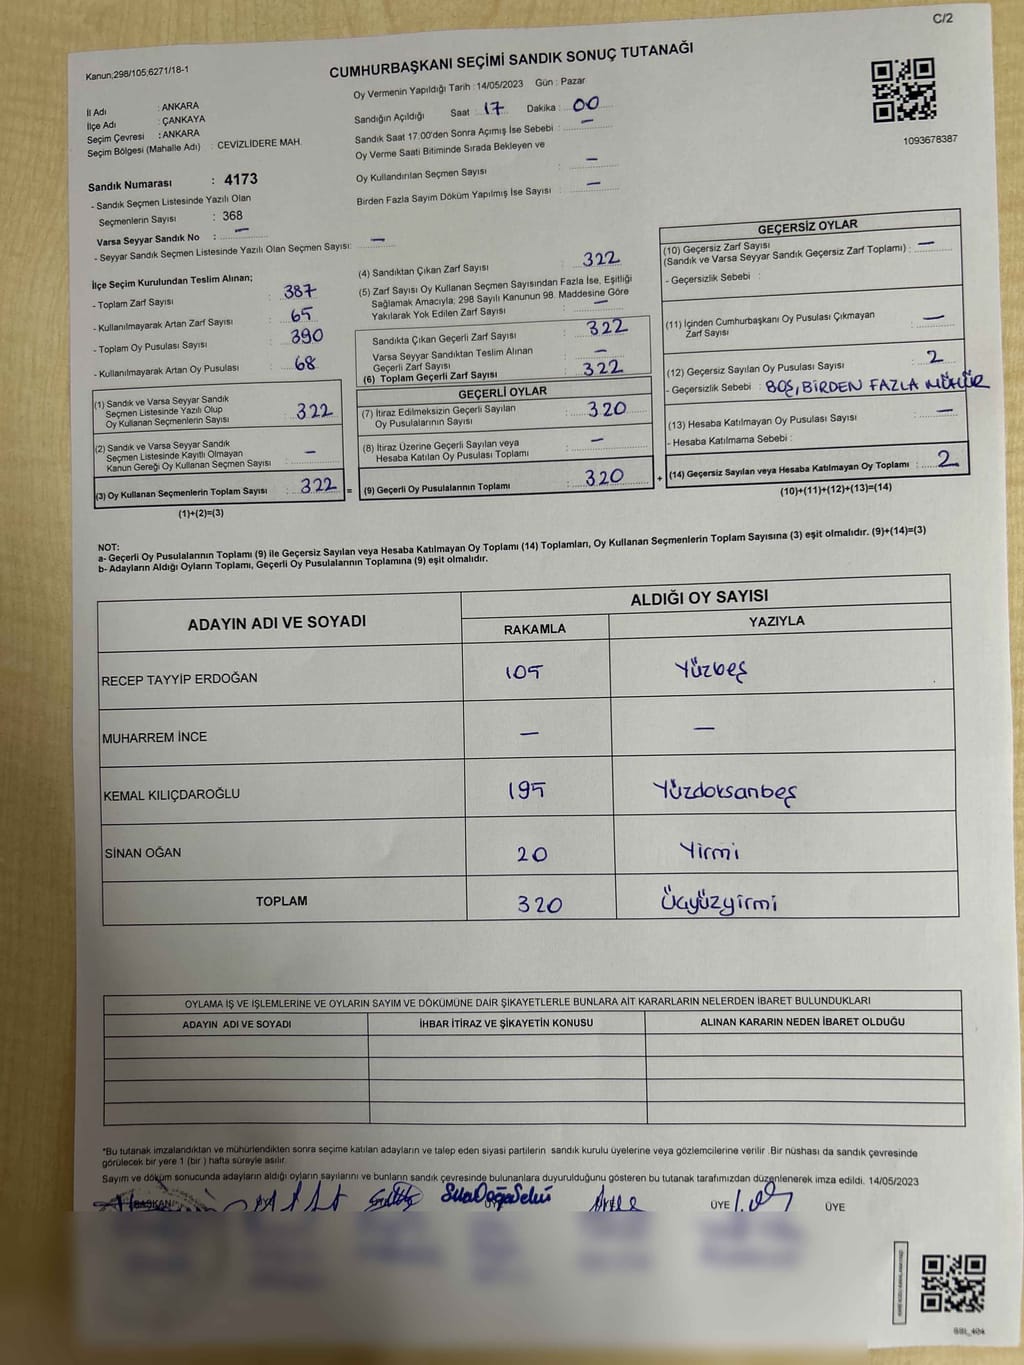 C/2
Kanun;298/105;6271/18-1
CUMHURBAŞKANI SEÇİMİ SANDIK SONUÇ TUTANAĞI
1093678387
İl Adı : ANKARA
İlçe Adı : ÇANKAYA
Seçim Çevresi : ANKARA
Seçim Bölgesi (Mahalle Adı) : CEVİZLİDERE MAH.
Oy Vermenin Yapıldığı Tarih : 14/05/2023 Gün : Pazar
Sandığın Açıldığı Saat 17 Dakika : 00
Sandık Saat 17:00'den Sonra Açımış İse Sebebi : —
Oy Verme Saati Bitiminde Sırada Bekleyen ve
Oy Kullandırılan Seçmen Sayısı : —
Birden Fazla Sayım Döküm Yapılmış İse Sayısı : —
Sandık Numarası : 4173
- Sandık Seçmen Listesinde Yazılı Olan
Seçmenlerin Sayısı : 368
Varsa Seyyar Sandık No : —
- Seyyar Sandık Seçmen Listesinde Yazılı Olan Seçmen Sayısı: —
İlçe Seçim Kurulundan Teslim Alınan;
- Toplam Zarf Sayısı : 387
- Kullanılmayarak Artan Zarf Sayısı : 65
- Toplam Oy Pusulası Sayısı : 390
- Kullanılmayarak Artan Oy Pusulası : 68
(1) Sandık ve Varsa Seyyar Sandık
Seçmen Listesinde Yazılı Olup
Oy Kullanan Seçmenlerin Sayısı : 322
(2) Sandık ve Varsa Seyyar Sandık
Seçmen Listesinde Kayıtlı Olmayan
Kanun Gereği Oy Kullanan Seçmen Sayısı : —
(3) Oy Kullanan Seçmenlerin Toplam Sayısı : 322 =
(1)+(2)=(3)
(4) Sandıktan Çıkan Zarf Sayısı : 322
(5) Zarf Sayısı Oy Kullanan Seçmen Sayısından Fazla İse, Eşitliği
Sağlamak Amacıyla; 298 Sayılı Kanunun 98. Maddesine Göre
Yakılarak Yok Edilen Zarf Sayısı : —
Sandıkta Çıkan Geçerli Zarf Sayısı : 322
Varsa Seyyar Sandıktan Teslim Alınan
Geçerli Zarf Sayısı : —
(6) Toplam Geçerli Zarf Sayısı : 322
GEÇERLİ OYLAR
(7) İtiraz Edilmeksizin Geçerli Sayılan
Oy Pusulalarının Sayısı : 320
(8) İtiraz Üzerine Geçerli Sayılan veya
Hesaba Katılan Oy Pusulası Toplamı : —
(9) Geçerli Oy Pusulalarının Toplamı : 320 +
GEÇERSİZ OYLAR
(10) Geçersiz Zarf Sayısı
(Sandık ve Varsa Seyyar Sandık Geçersiz Zarf Toplamı) : —
- Geçersizlik Sebebi :
(11) İçinden Cumhurbaşkanı Oy Pusulası Çıkmayan
Zarf Sayısı : —
(12) Geçersiz Sayılan Oy Pusulası Sayısı : 2
- Geçersizlik Sebebi : BOŞ, BİRDEN FAZLA MÜHÜR
(13) Hesaba Katılmayan Oy Pusulası Sayısı : —
- Hesaba Katılmama Sebebi :
(14) Geçersiz Sayılan veya Hesaba Katılmayan Oy Toplamı : 2
(10)+(11)+(12)+(13)=(14)
NOT:
a- Geçerli Oy Pusulalarının Toplamı (9) ile Geçersiz Sayılan veya Hesaba Katılmayan Oy Toplamı (14) Toplamları, Oy Kullanan Seçmenlerin Toplam Sayısına (3) eşit olmalıdır. (9)+(14)=(3)
b- Adayların Aldığı Oyların Toplamı, Geçerli Oy Pusulalarının Toplamına (9) eşit olmalıdır.
ADAYIN ADI VE SOYADI
ALDIĞI OY SAYISI
RAKAMLA YAZIYLA
RECEP TAYYİP ERDOĞAN 105 Yüzbeş
MUHARREM İNCE — —
KEMAL KILIÇDAROĞLU 195 Yüzdoksanbeş
SİNAN OĞAN 20 Yirmi
TOPLAM 320 Üçyüzyirmi
OYLAMA İŞ VE İŞLEMLERİNE VE OYLARIN SAYIM VE DÖKÜMÜNE DAİR ŞİKAYETLERLE BUNLARA AİT KARARLARIN NELERDEN İBARET BULUNDUKLARI
ADAYIN ADI VE SOYADI İHBAR İTİRAZ VE ŞİKAYETİN KONUSU ALINAN KARARIN NEDEN İBARET OLDUĞU
*Bu tutanak imzalandıktan ve mühürlendikten sonra seçime katılan adayların ve talep eden siyasi partilerin sandık kurulu üyelerine veya gözlemcilerine verilir .Bir nüshası da sandık çevresinde
görülecek bir yere 1 (bir ) hafta süreyle asılır.
Sayım ve döküm sonucunda adayların aldığı oyların sayılarını ve bunların sandık çevresinde bulunanlara duyurulduğunu gösteren bu tutanak tarafımızdan düzenlenerek imza edildi. 14/05/2023
BAŞKAN ÜYE ÜYE